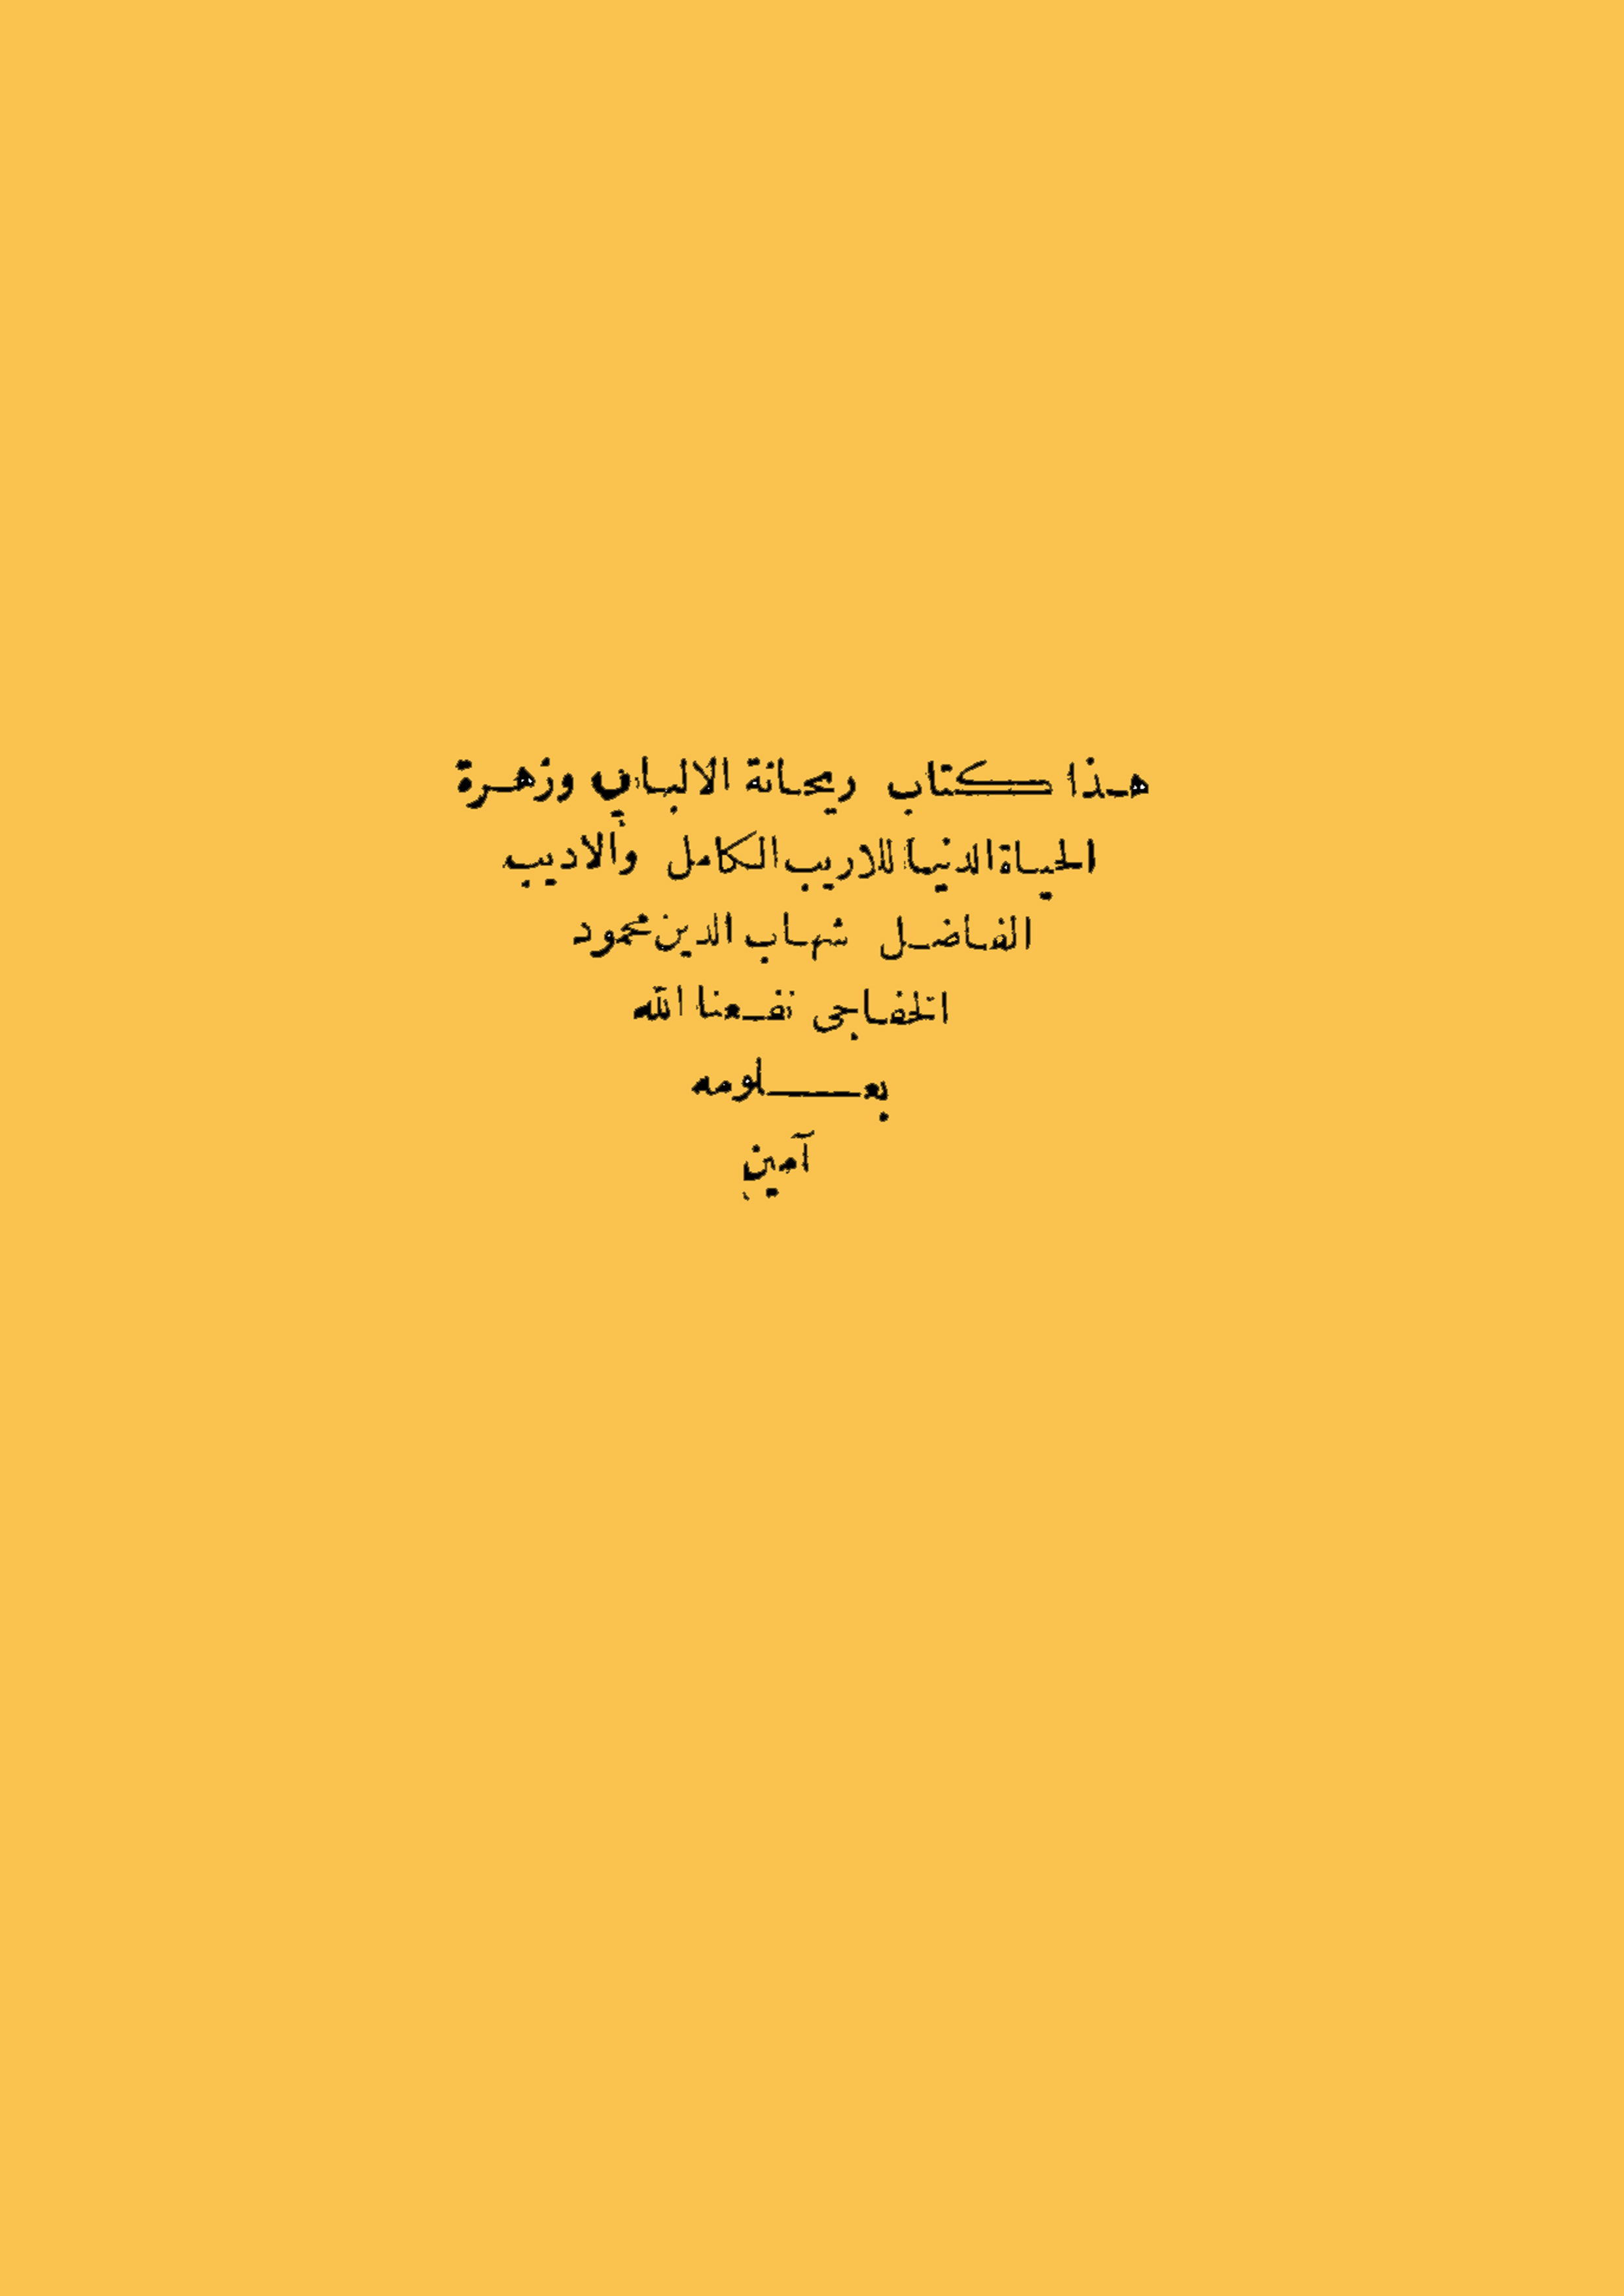 هذا كتاب ريحانة الالبا وزهرة
الحياة الدنيا للاريب الكامل والاديب
الفاضل شهاب الدين محمود
الخفاجى نفعنا الله
بعلومه
آمين